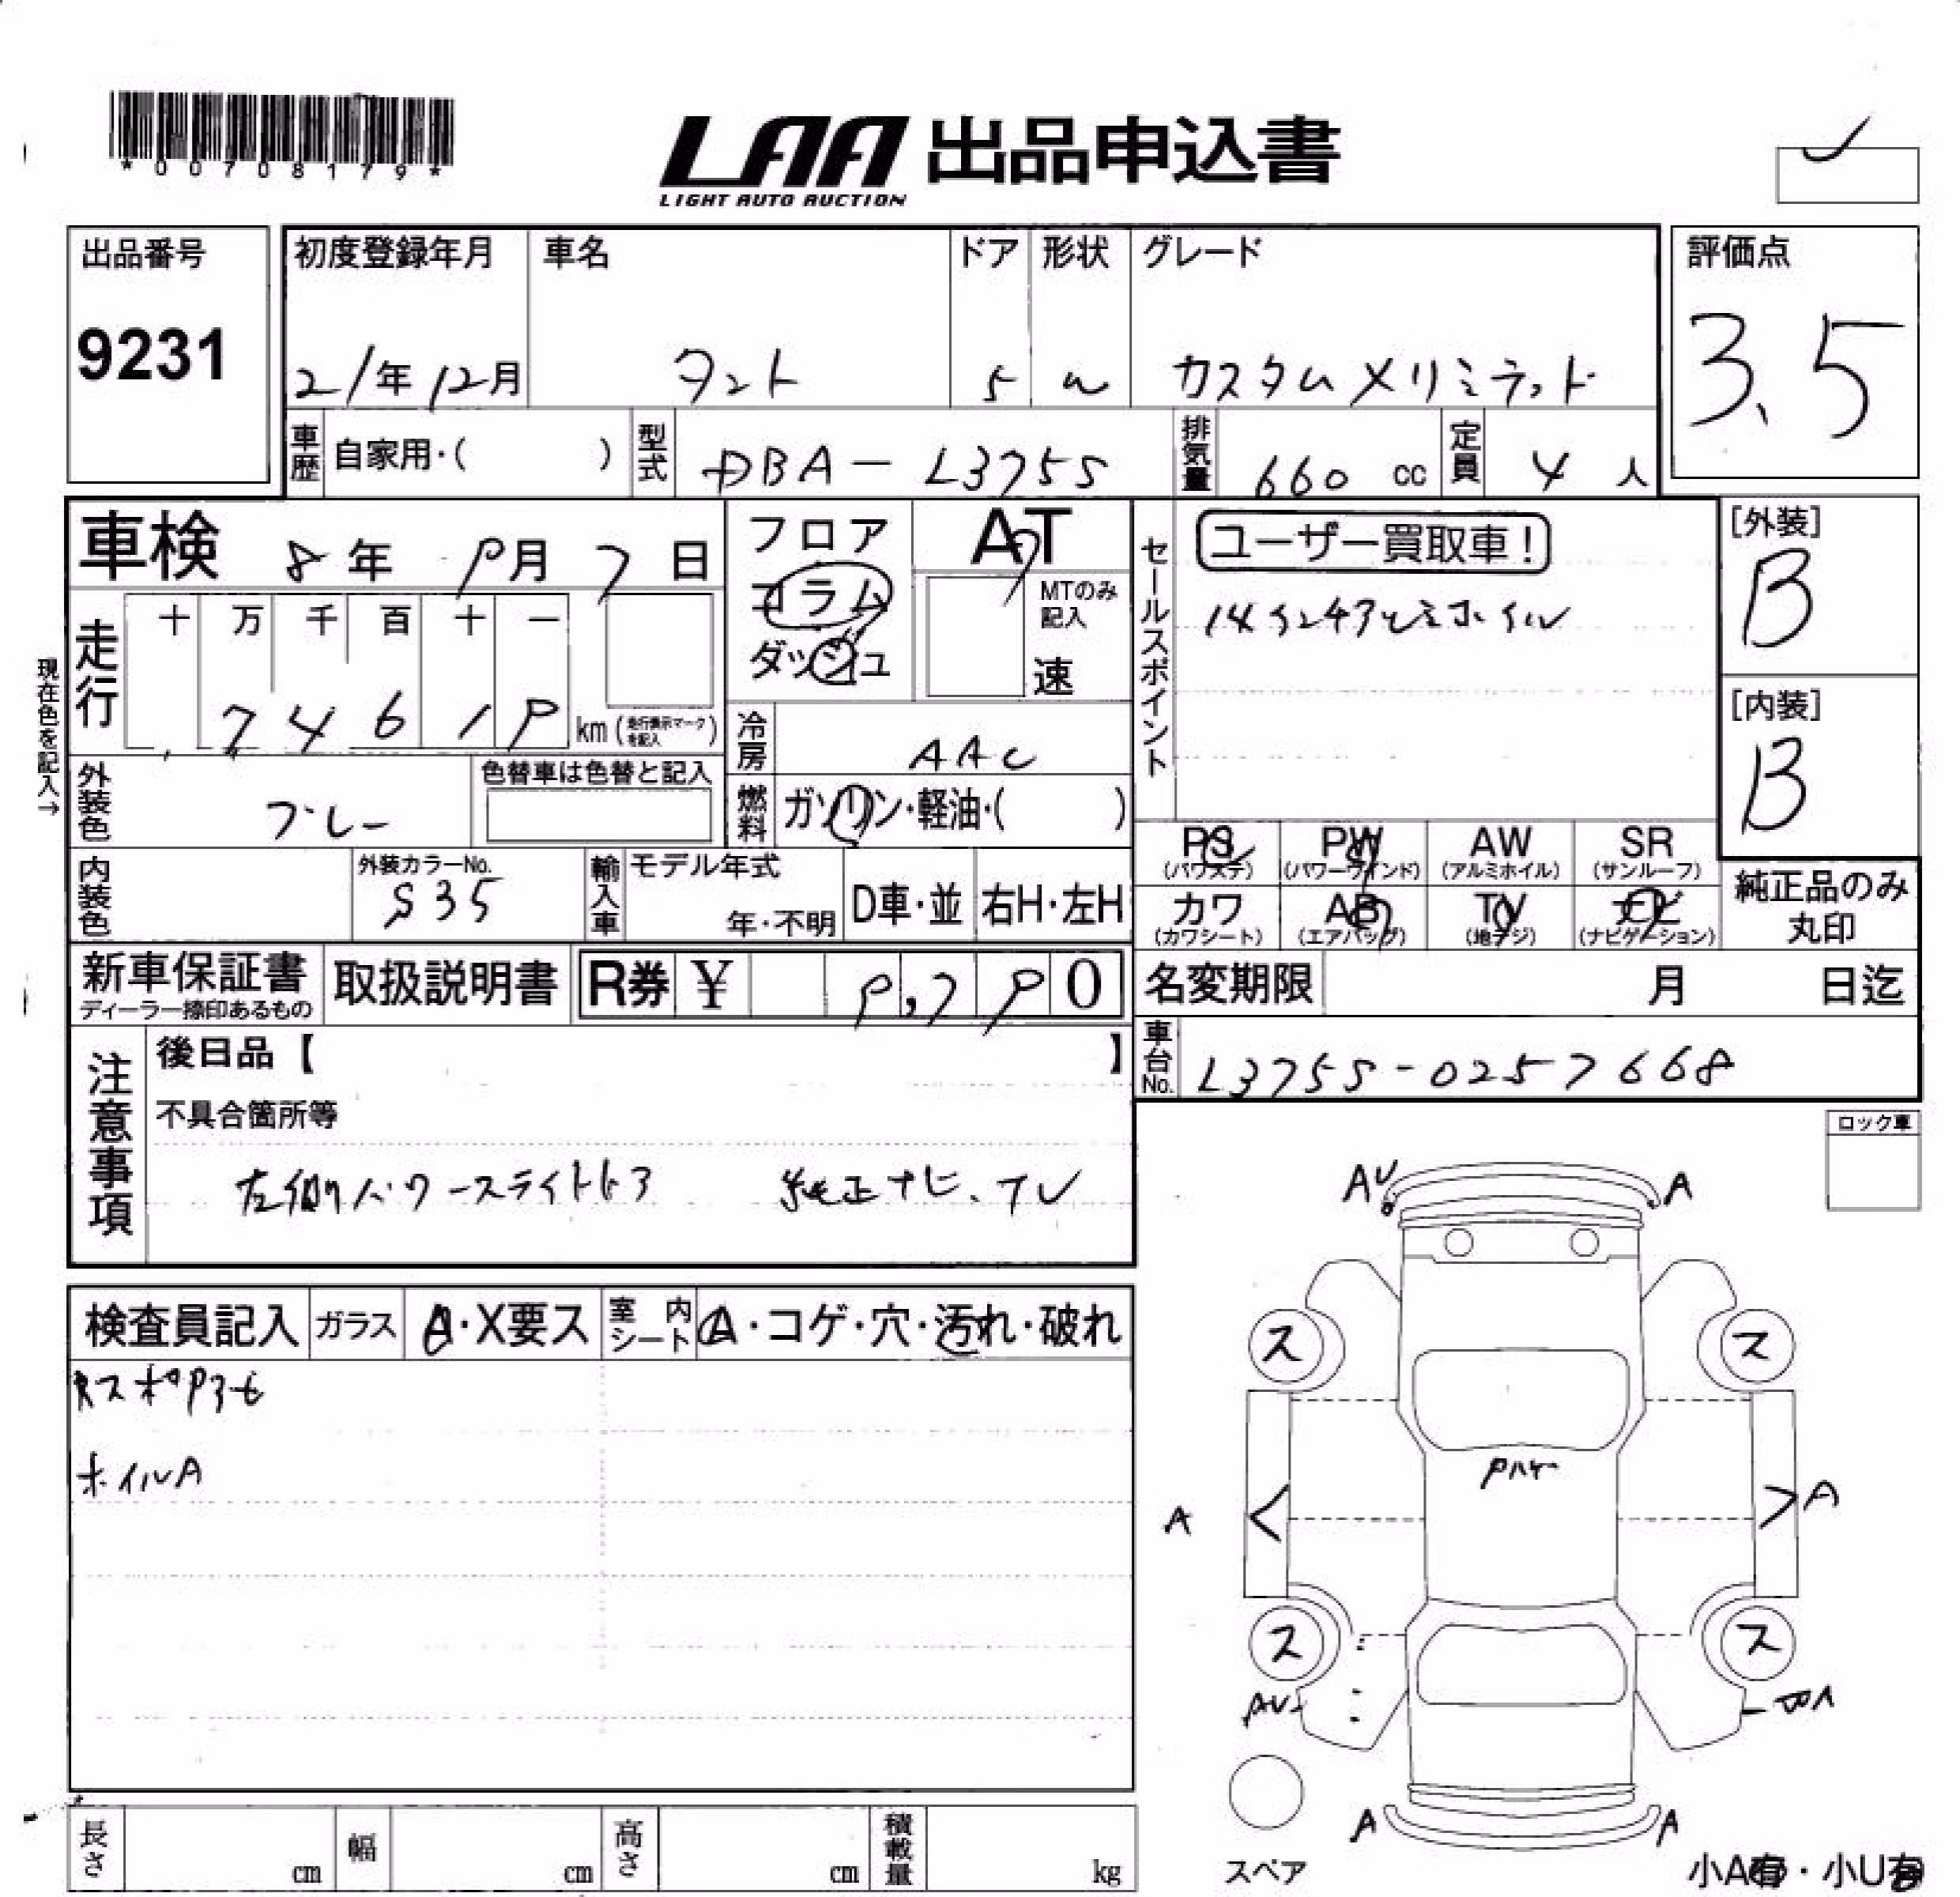 *00708179*
LAA 出品申込書
LIGHT AUTO AUCTION
出品番号
9231
初度登録年月
21年12月
車名
タント
ドア
5
形状
W
グレード
カスタムXリミテッド
評価点
3.5
車歴
自家用・(  )
型式
DBA-L375S
排気量
660 cc
定員
4人
車検 8年9月7日
フロア
コラム
ダッシュ
AT
MTのみ記入
速
セールスポイント
ユーザー買取車!
14インチアルミホイル
[外装]
B
[内装]
B
現在色を記入→
走行
十 万 千 百 十 一
74619 km (走行表示マークを記入)
冷房
AAC
外装色
ブルー
色替車は色替と記入
燃料
ガソリン・軽油・(  )
内装色
外装カラーNo.
S35
輸入車
モデル年式
年・不明
D車・並
右H・左H
PS
(パワステ)
PW
(パワーウインド)
AW
(アルミホイル)
SR
(サンルーフ)
カワ
(カワシート)
AB
(エアバッグ)
TV
(地デジ)
ナビ
(ナビゲーション)
純正品のみ
丸印
新車保証書
ディーラー捺印あるもの
取扱説明書
R券 ¥ 9,790
名変期限 月 日迄
車台No.
L375S-0257668
注意事項
後日品【  】
不具合箇所等
左側パワースライドドア 純正ナビ、TV
ロック車
検査員記入
ガラス
A・X要ス
室内シート
A・コゲ・穴・汚れ・破れ
ホイルA
AU
A
ス
ス
Pハゲ
A
A
ス
ス
AU
A
A
スペア
小A有・小U有
長さ cm
幅 cm
高さ cm
積載量 kg